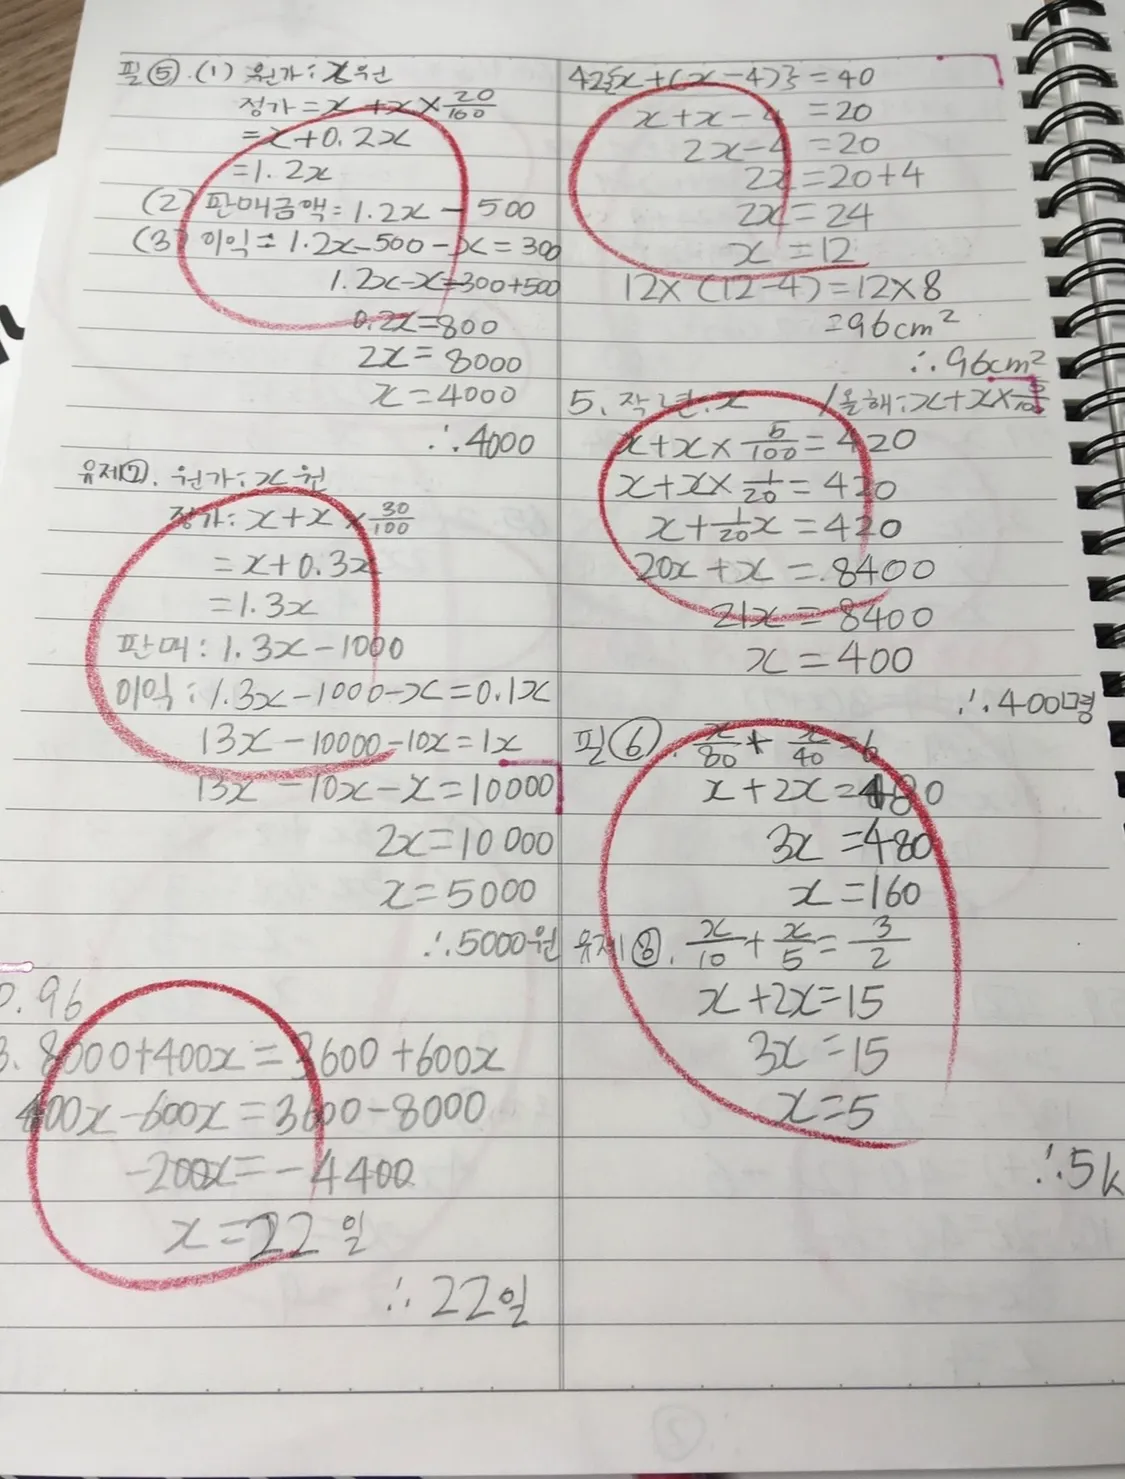 필⑤.(1) 원가: x원
정가 = x + x × 20/100
= x + 0.2x
= 1.2x
(2) 판매금액 = 1.2x - 500
(3) 이익 = 1.2x - 500 - x = 300
1.2x - x = 300 + 500
0.2x = 800
2x = 8000
x = 4000
∴ 4000
유제⑦. 원가: x원
정가: x + x × 30/100
= x + 0.3x
= 1.3x
판매: 1.3x - 1000
이익: 1.3x - 1000 - x = 0.1x
13x - 10000 - 10x = 1x
13x - 10x - x = 10000
2x = 10000
x = 5000
∴ 5000원
0.96
3. 8000 + 400x = 3600 + 600x
400x - 600x = 3600 - 8000
-200x = -4400
x = 22일
∴ 22일
4. 2{x + (x - 4)} = 40
x + x - 4 = 20
2x - 4 = 20
2x = 20 + 4
2x = 24
x = 12
12 × (12 - 4) = 12 × 8
= 96cm²
∴ 96cm²
5. 작년: x / 올해: x + x × 5/100
x + x × 5/100 = 420
x + x × 1/20 = 420
x + 1/20 x = 420
20x + x = 8400
21x = 8400
x = 400
∴ 400명
필⑥. x/80 + x/40 = 6
x + 2x = 480
3x = 480
x = 160
유제⑧. x/10 + x/5 = 3/2
x + 2x = 15
3x = 15
x = 5
∴ 5k